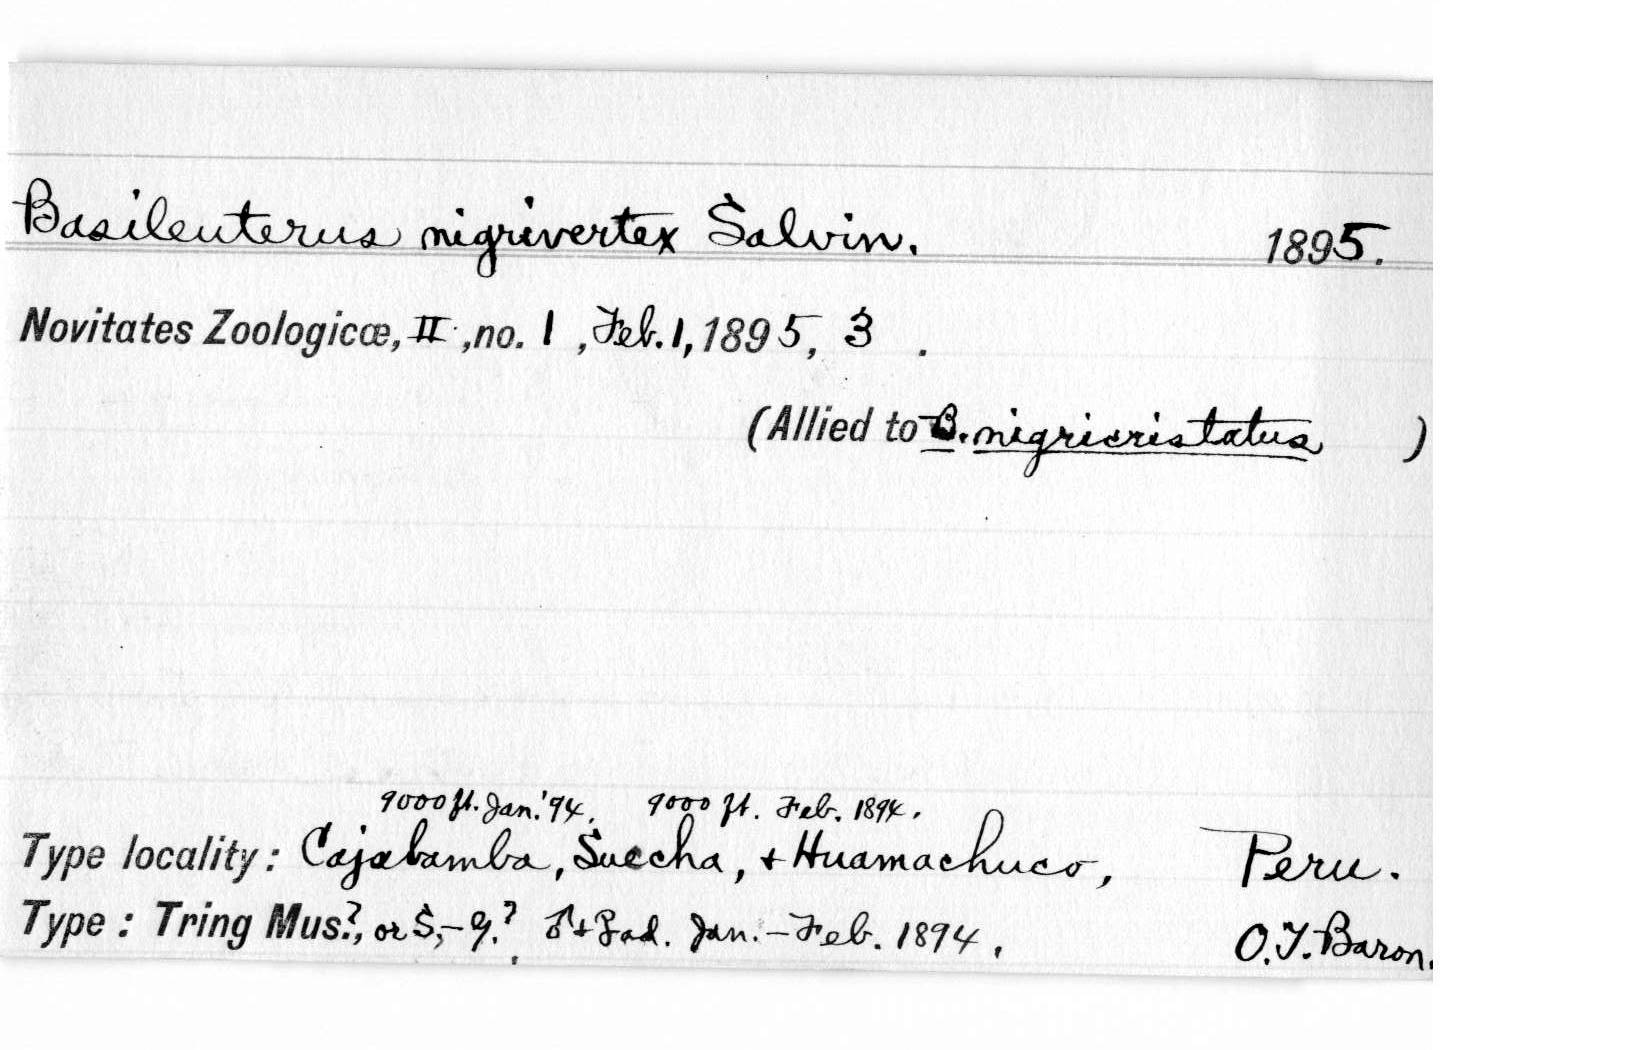 Basileuterus nigrivertex Salvin. 1895.
Novitates Zoologicæ, II, no. 1, Feb. 1, 1895, 3.
(Allied to B. nigricristatus)
9000 ft. Jan. '94. 9000 ft. Feb. 1894.
Type locality: Cajabamba, Succha, + Huamachuco, Peru.
Type: Tring Mus?, or S.-G.? ♂+♀ad. Jan.-Feb. 1894. O.T. Baron.